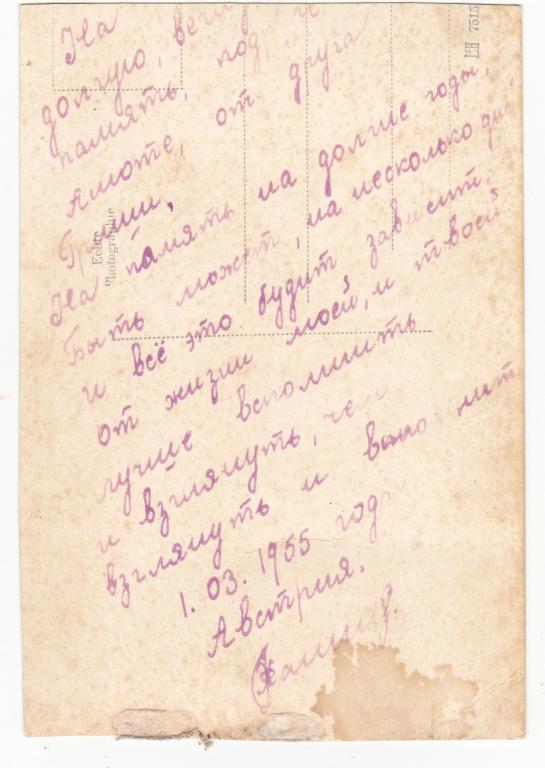 На
долгую,
память, под
Анюте, от друга
Гриши,
На память на долгие годы,
Быть может, на несколько дней
и всё это будит зависит,
от жизни моей, и твоей
лучше вспомнить
и взглянуть, чем
взглянуть и вспомнит
1. 03. 1955 год
Австрия.
Echte
Photographie
7515